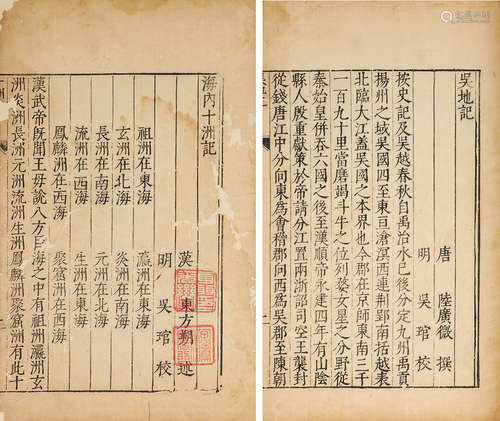 吳地記
唐 陸廣微 撰
明 吳琯 校
按史記及吳越春秋自禹治水巳後分定九州禹貢
揚州之域吳國四至東亘滄溟西連荊郢南括越表
北臨大江蓋吳國之本界也今郡在京師東南三千
一百九十里當磨蝎斗牛之位列婺女星之分野從
秦始皇併吞六國之後至漢順帝永建四年有山陰
縣人殷重獻策於帝請江置兩浙詔司空王襲封
從錢唐江中分向東為會稽郡向西為吳郡至陳朝
海內十洲記
漢 東方朔 述
明 吳琯 校
祖洲在東海 瀛洲在東海
玄洲在北海 炎洲在南海
長洲在南海 元洲在北海
流洲在西海 生洲在東海
鳳麟洲在西海 聚窟洲在西海
漢武帝旣聞王母說八方巨海之中有祖洲瀛洲玄
洲炎洲長洲元洲流洲生洲鳳麟洲聚窟洲有此十